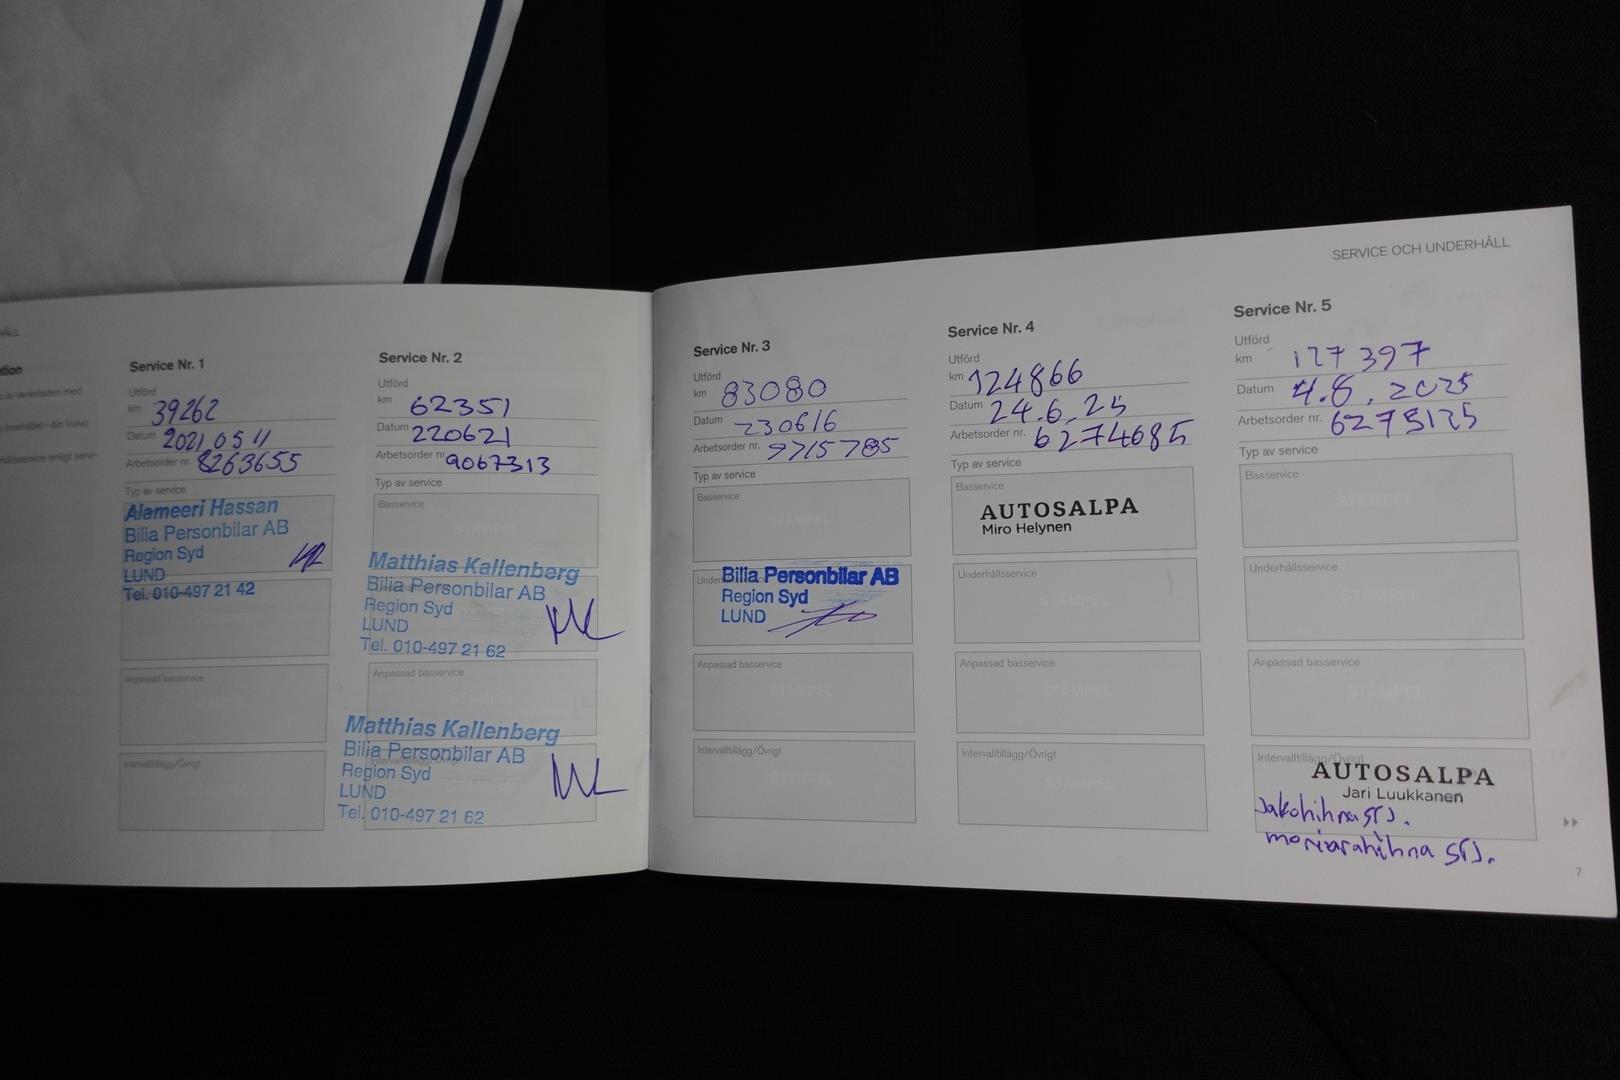 SERVICE OCH UNDERHÅLL
av verkstaden med
Service Nr. 1
Utförd
km 39262
Datum 2021 05 11
Arbetsorder nr. 8263655
Typ av service
Alameeri Hassan
Bilia Personbilar AB
Region Syd
LUND
Tel. 010-497 21 42
Anpassad basservice
STÄMPEL
Intervalltillägg/Övrigt
STÄMPEL
Service Nr. 2
Utförd
km 62351
Datum 220621
Arbetsorder nr. 9067313
Typ av service
Basservice
STÄMPEL
Matthias Kallenberg
Bilia Personbilar AB
Region Syd
LUND
Tel. 010-497 21 62
Anpassad basservice
STÄMPEL
Matthias Kallenberg
Bilia Personbilar AB
Intervalltillägg/Övrigt
Region Syd
LUND
Tel. 010-497 21 62
Service Nr. 3
Utförd
km 83080
Datum 230616
Arbetsorder nr. 9715785
Typ av service
Basservice
STÄMPEL
Bilia Personbilar AB
Region Syd
LUND
Anpassad basservice
STÄMPEL
Intervalltillägg/Övrigt
STÄMPEL
Service Nr. 4
Utförd
km 124866
Datum 24.6.25
Arbetsorder nr. 6274685
Typ av service
Basservice
AUTOSALPA
Miro Helynen
Underhållsservice
STÄMPEL
Anpassad basservice
STÄMPEL
Intervalltillägg/Övrigt
STÄMPEL
Service Nr. 5
Utförd
km 127 397
Datum 4.8.2025
Arbetsorder nr. 6275125
Typ av service
Basservice
STÄMPEL
Underhållsservice
STÄMPEL
Anpassad basservice
STÄMPEL
Intervalltillägg/Övrigt
AUTOSALPA
Jari Luukkanen
Jakohihna srj.
moniurahihna srj.
7